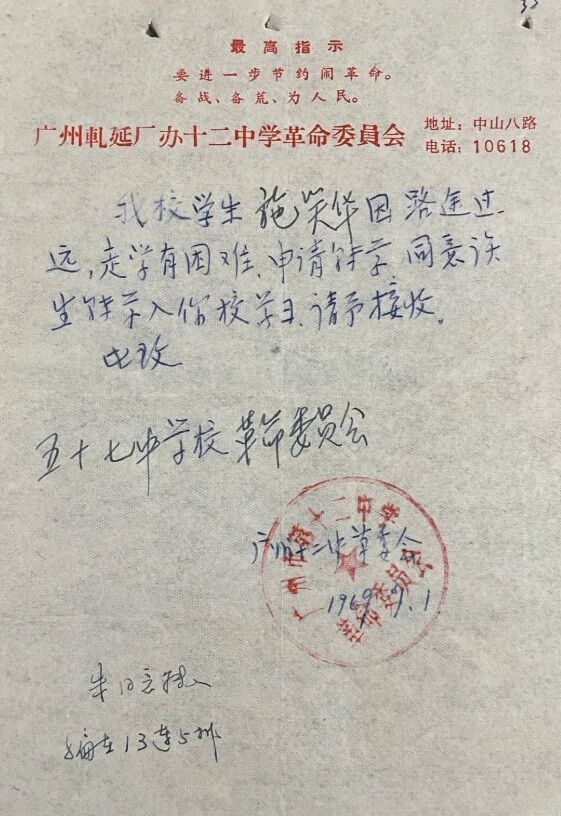 最高指示
要进一步节约闹革命。
备战、备荒、为人民。
广州軋延厂办十二中学革命委員会
地址：中山八路
电话：10618
我校学生施笑华因路途过
远，走学有困难、申请转学，同意该
生转学入你校学习，请予接收。
此致
五十七中学校革命委员会
广州市第十二中学
革命委员会
广州十二中革委会
1969.9.1
同意转入
编在13连5排